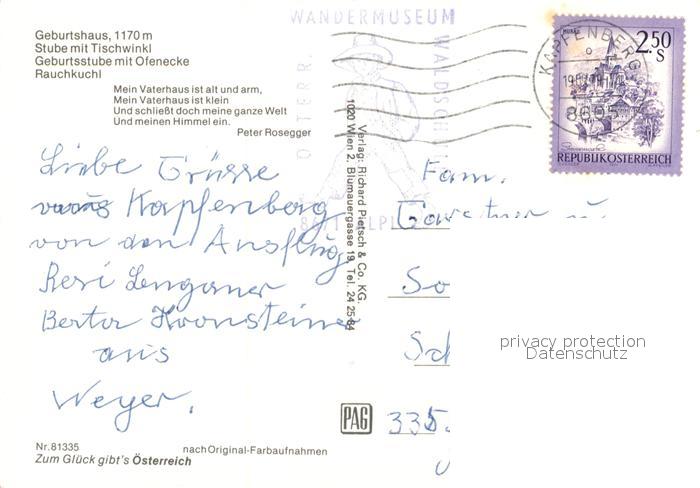 Geburtshaus, 1170 m
Stube mit Tischwinkl
Geburtsstube mit Ofenecke
Rauchkuchl
Mein Vaterhaus ist alt und arm,
Mein Vaterhaus ist klein
Und schließt doch meine ganze Welt
Und meinen Himmel ein.
Peter Rosegger
WANDERMUSEUM
ÖSTERR.
KAPFENBERG
2.50
S
REPUBLIK ÖSTERREICH
Liebe Grüsse
Kapfenberg
von den Ausflug
Resi
Berta
aus
Weyer.
Verlag: Richard Pietsch & Co. KG.
1020 Wien 2, Blumauergasse 19, Tel. 24 25 84
Fam.
So
Sch
335.
privacy protection
Datenschutz
PAG
Nr. 81335
nach Original-Farbaufnahmen
Zum Glück gibt's Österreich